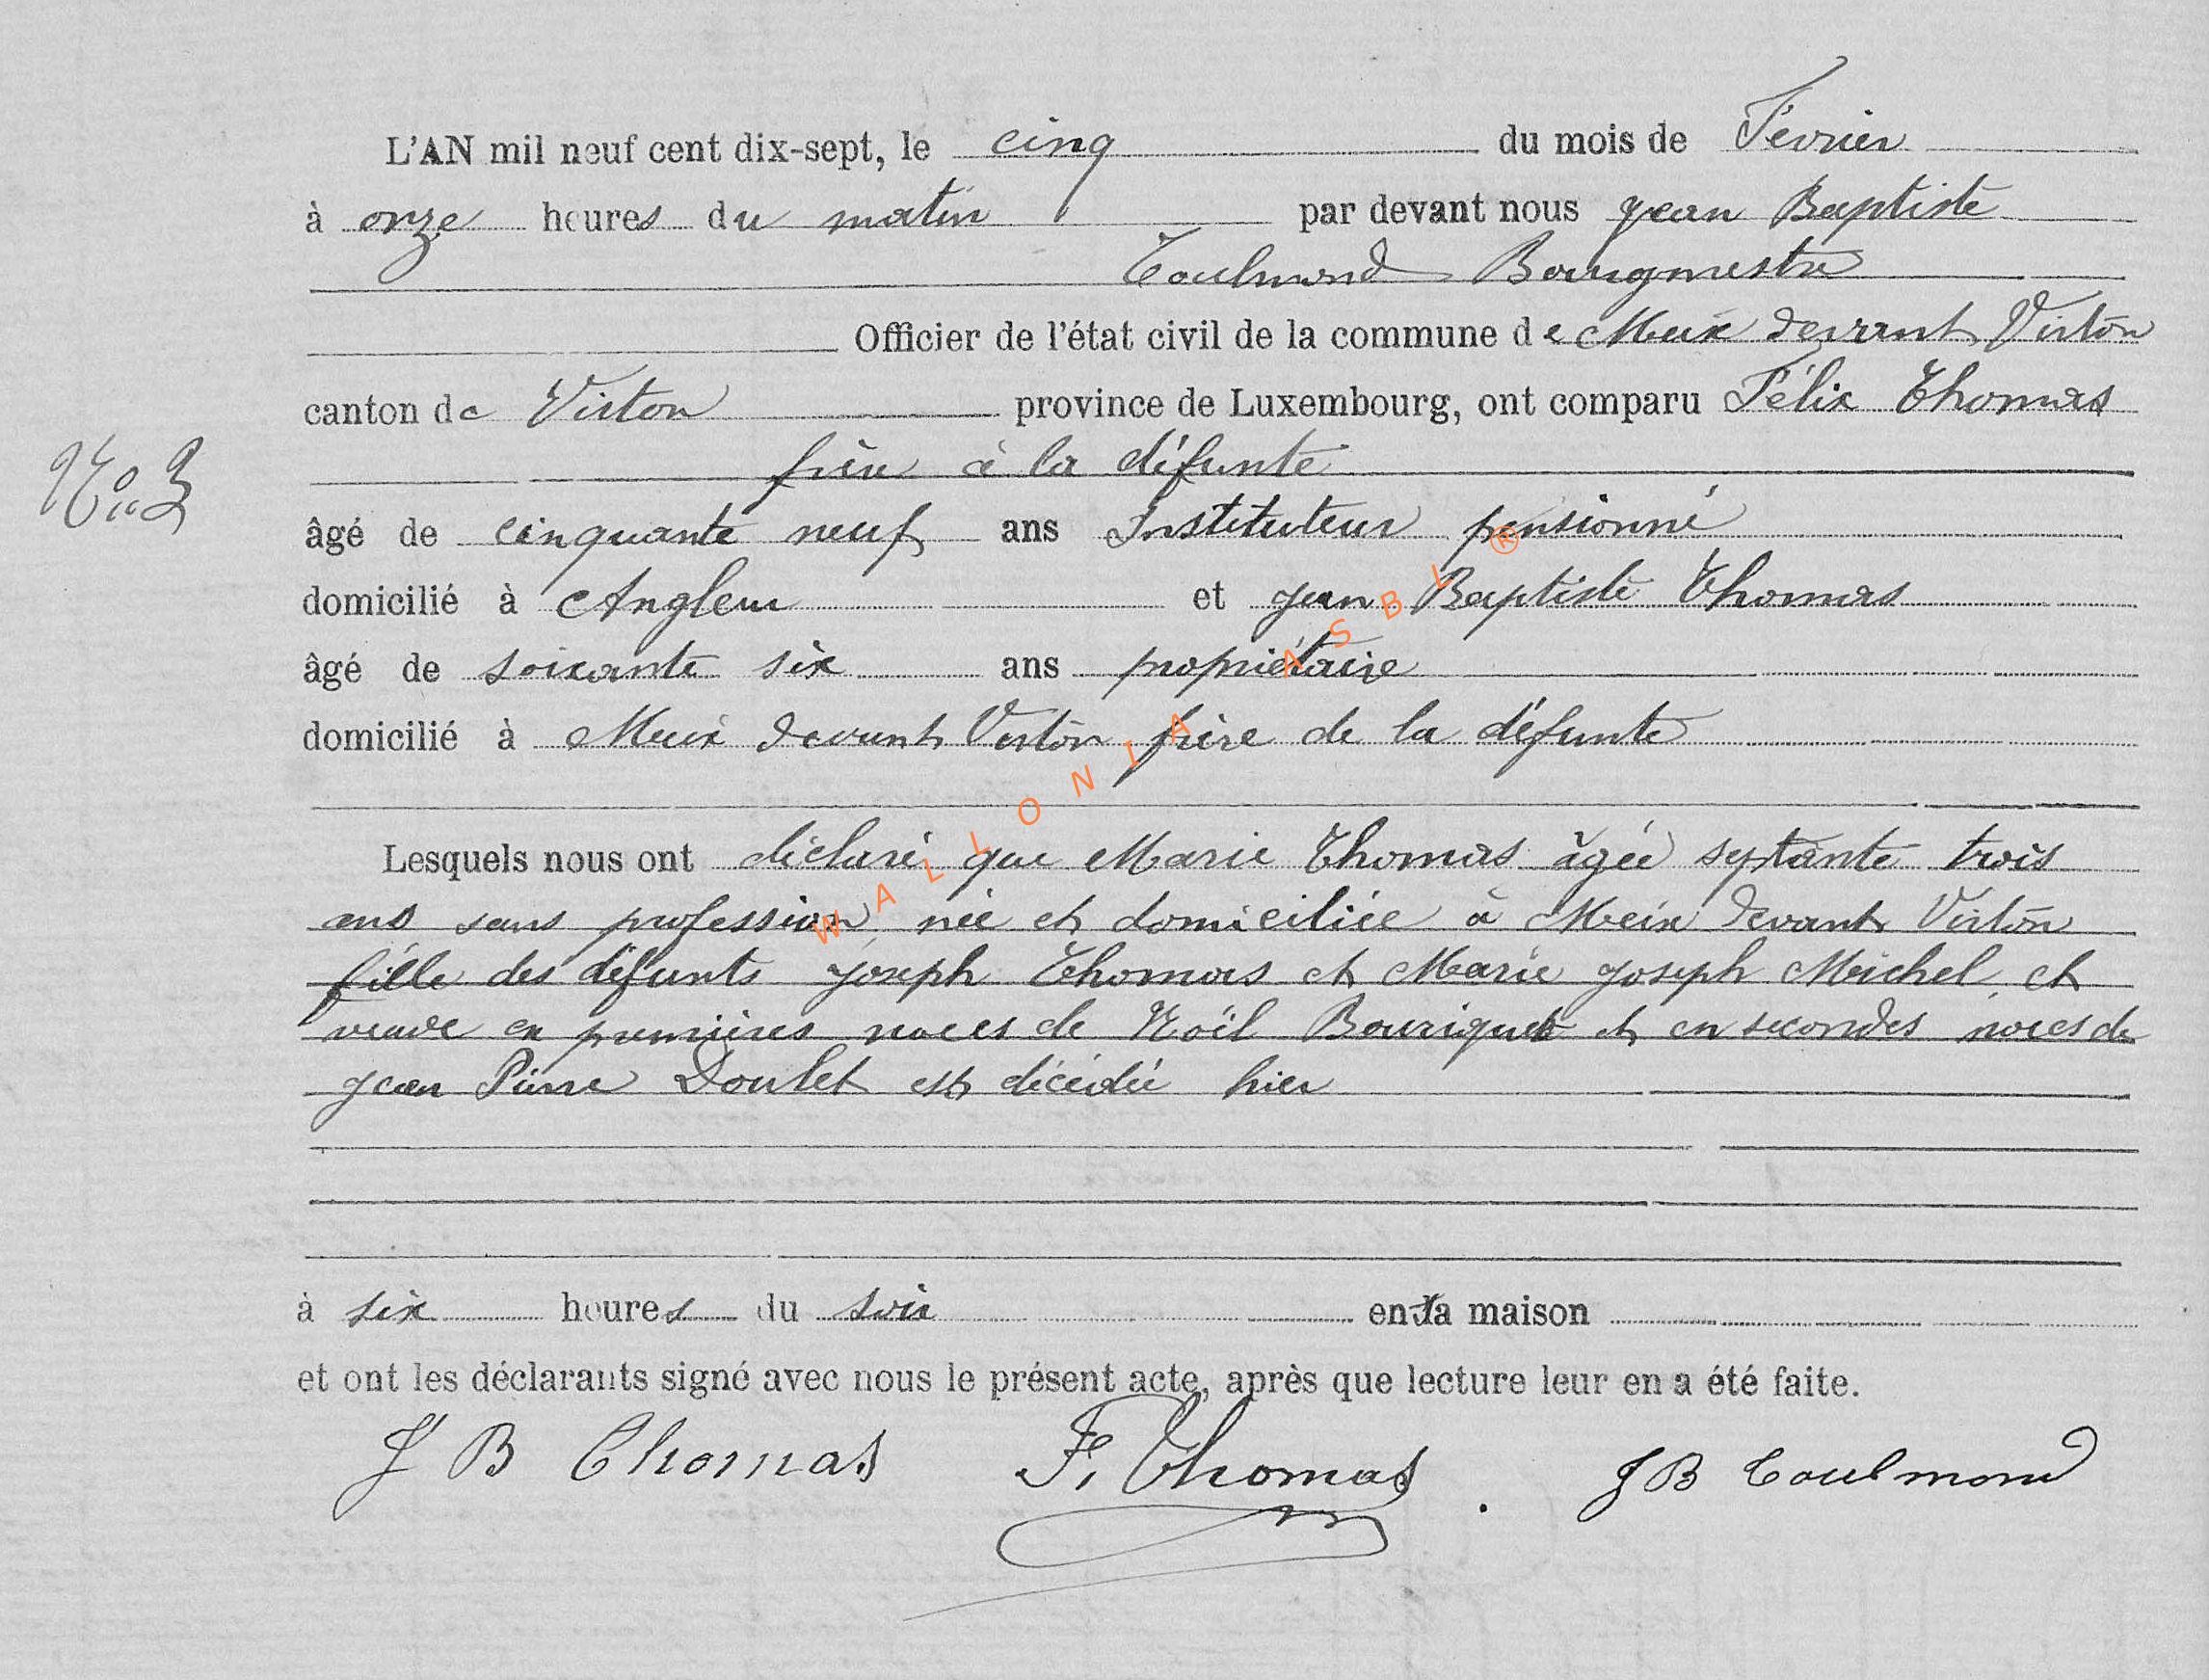 L'AN mil neuf cent dix-sept, le cinq du mois de Février
à onze heures du matin par devant nous Jean Baptiste
Toulmond Bourgmestre
Officier de l'état civil de la commune de Meix devant Virton
canton de Virton province de Luxembourg, ont comparu Félix Thomas
frère à la défunte
N° 3
âgé de cinquante neuf ans Instituteur pensionné
domicilié à Angleur et Jean Baptiste Thomas
âgé de soixante six ans propriétaire
domicilié à Meix devant Virton frère de la défunte
Lesquels nous ont déclaré que Marie Thomas âgée septante trois
ans sans profession, née et domiciliée à Meix devant Virton
fille des défunts Joseph Thomas et Marie Joseph Michel, et
veuve en premières noces de Noël Bouriquet et en secondes noces de
Jean Pierre Doulet est décédée hier
à six heures du soir en sa maison
et ont les déclarants signé avec nous le présent acte, après que lecture leur en a été faite.
J B Thomas F. Thomas JB Toulmond
WALLONIA ASBL ®